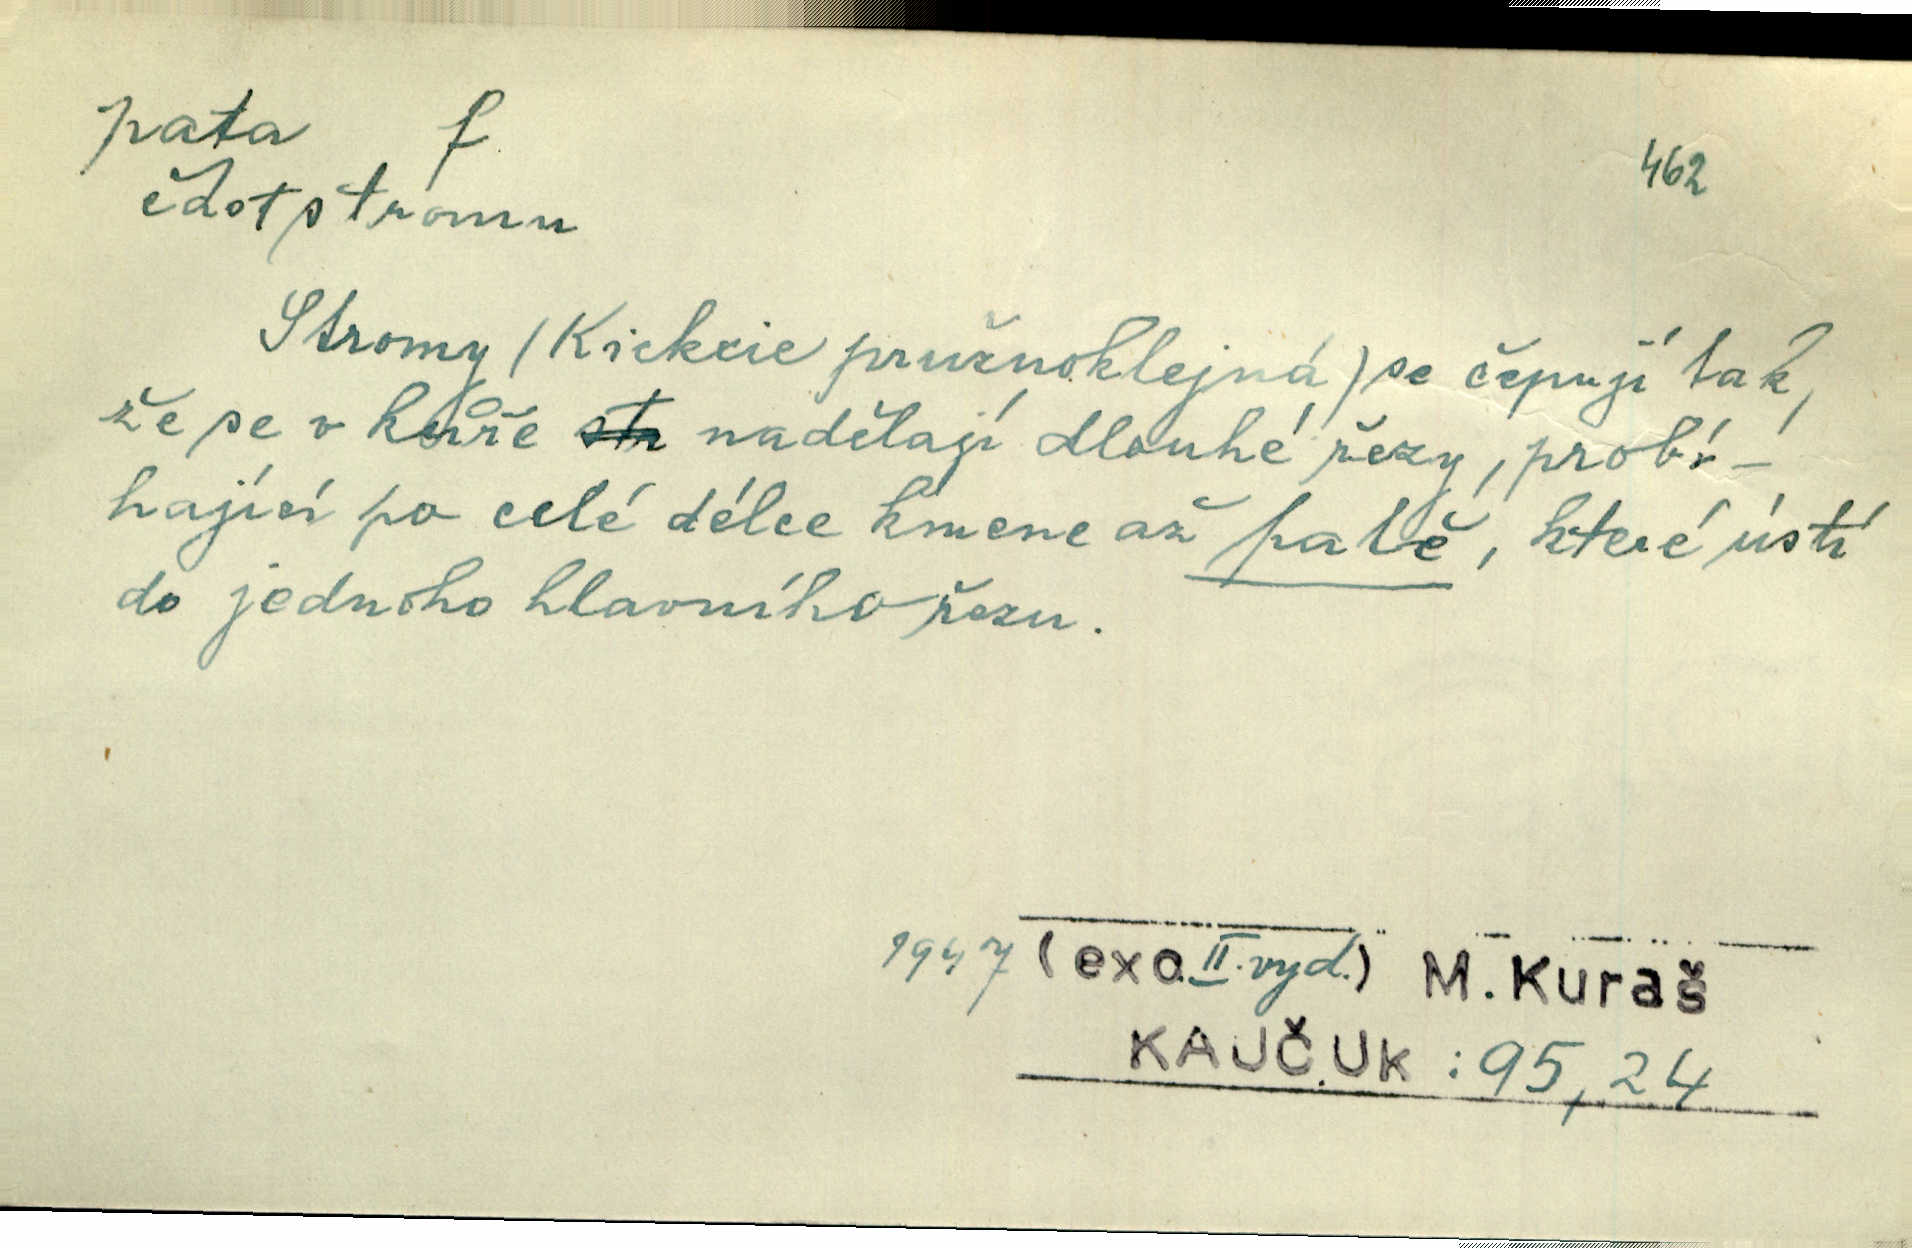 pata f
část stromu
462
Stromy (Kickxie pružnoklejná) se čepují tak,
že se v kůře nadělají dlouhé řezy, probí-
hající po celé délce kmene až patě, které ústí
do jednoho hlavního řezu.
1947 (exc. II. vyd.) M. Kuraš
KAUČUK : 95, 24